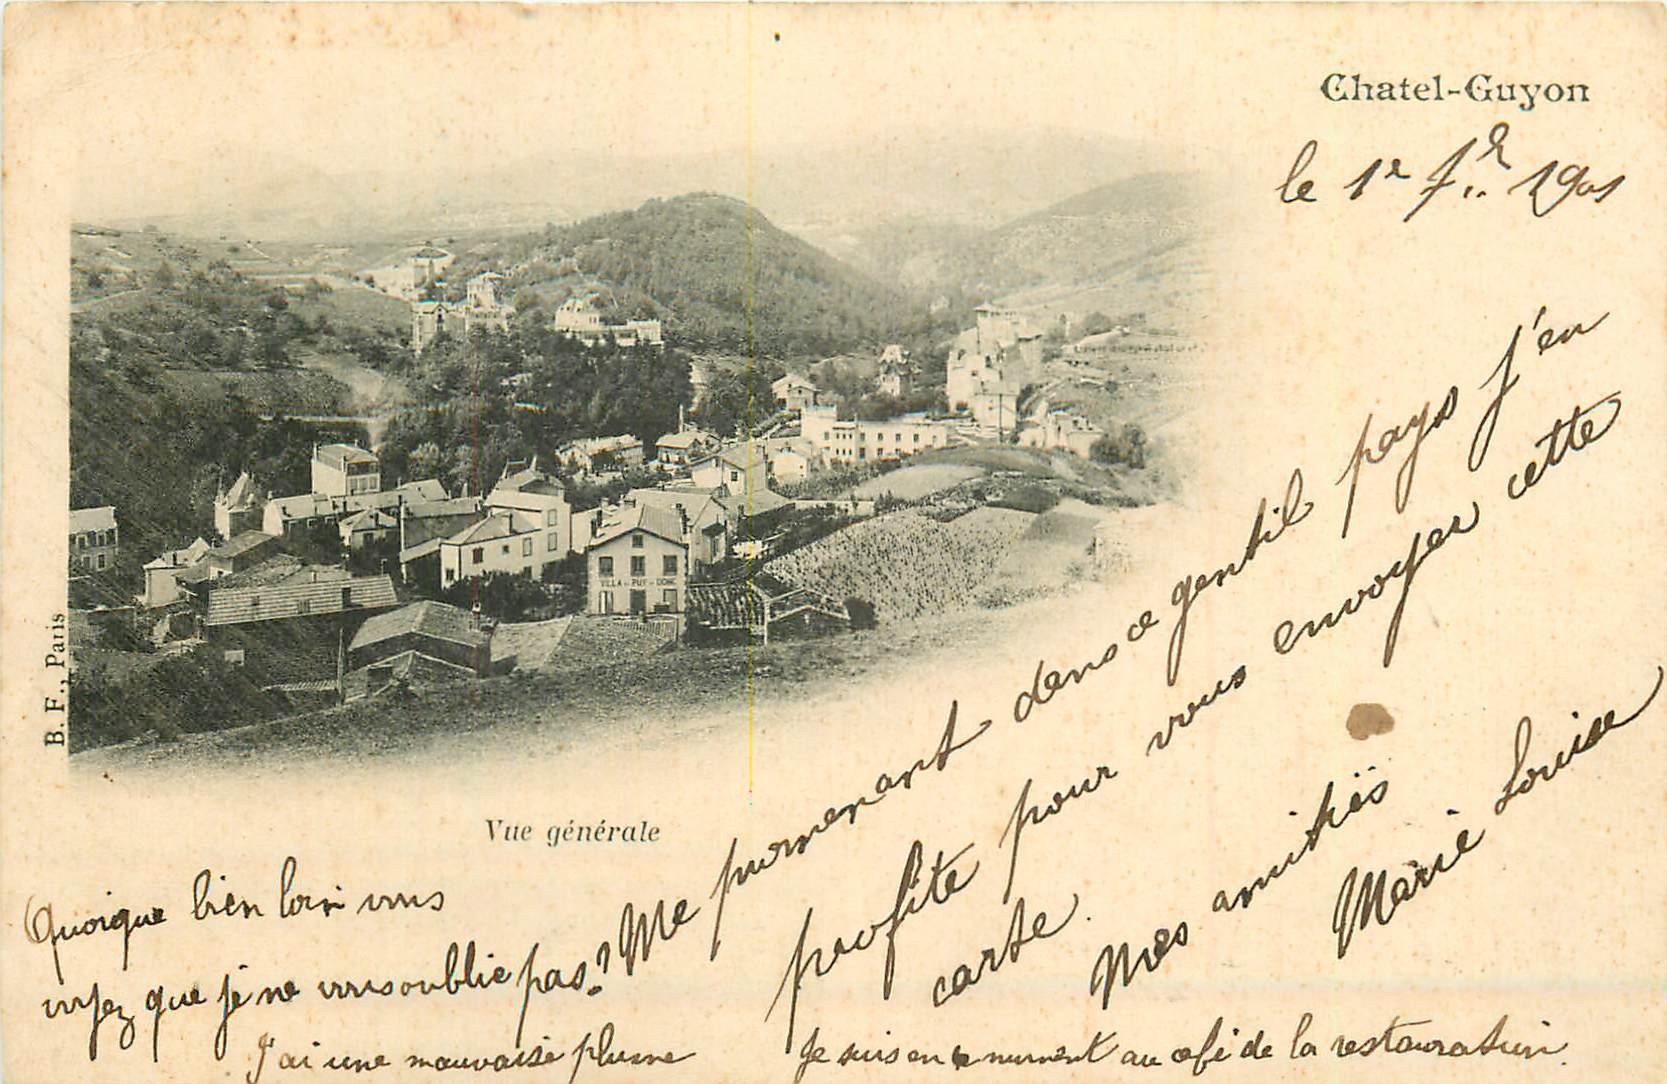 Chatel-Guyon
le 1er fr 1901
VILLA DU PUY DE DOME
B. F., Paris
Vue générale
Quoique bien loin vous
voyez que je ne vous oublie pas?
J'ai une mauvaise plume
Me promenant dans ce gentil pays j'en
profite pour vous envoyer cette
carte.
Mes amitiés
Marie Louise
Je suis en ce moment au café de la restauration.